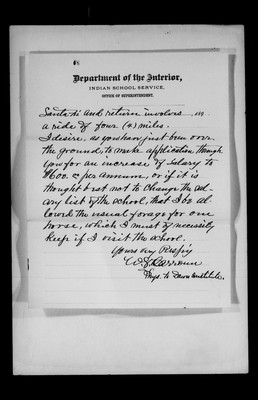 Department of the Interior,
INDIAN SCHOOL SERVICE,
OFFICE OF SUPERINTENDENT.
Santa Fe and return involves 188
a ride of four (4) miles.
I desire, as you have just been over
the ground, to make application through
you for an increase of salary to
$600. per annum, or if it is
thought best not to change the sal-
ary list of the school, that I be al-
lowed the usual forage for one
horse, which I must of necessity
keep if I visit the school.
Yours very Resptfy
W. S. Harroun
Phys. to Dawes Institute.